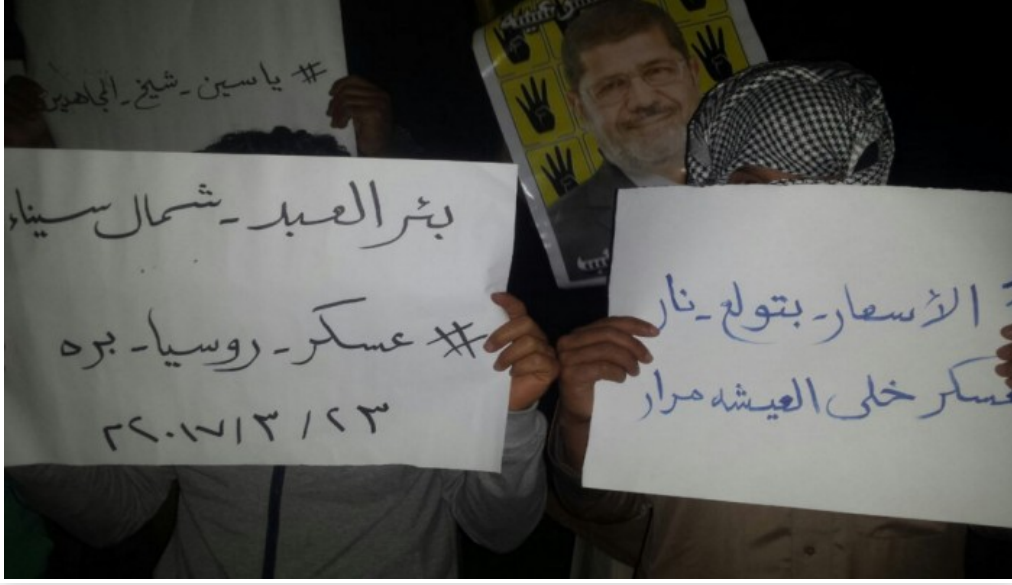 # ياسين_شيخ_المجاهدين
بئر العبد_شمال سيناء
# عسكر_روسيا_بره
٢٣ / ٣ / ٢٠١٧م
الأسعار_بتولع_نار
عسكر خلى العيشه مرار